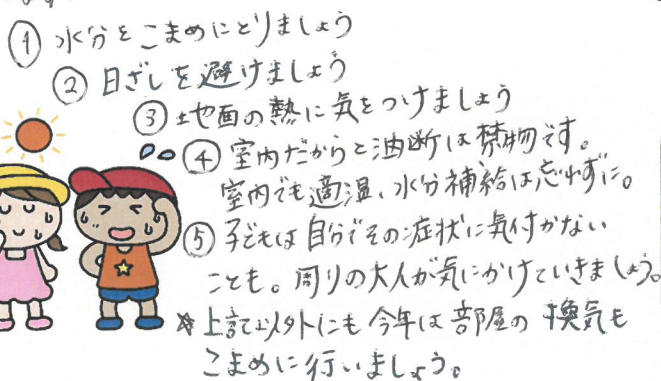 ① 水分をこまめにとりましょう
② 日ざしを避けましょう
③ 地面の熱に気をつけましょう
④ 室内だからと油断は禁物です。
室内でも適温、水分補給は忘れずに。
⑤ 子どもは自分でその症状に気付かない
ことも。周りの大人が気にかけていきましょう。
※上記以外にも今年は部屋の換気も
こまめに行いましょう。